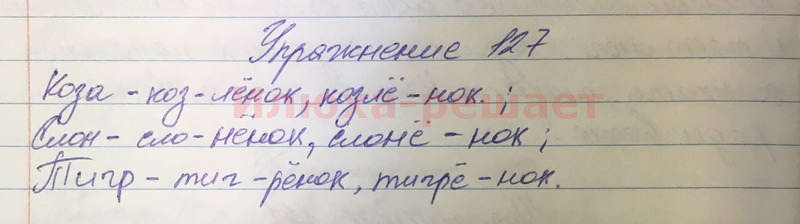 Упражнение 127
Коза - коз-лёнок, козлё-нок.;
илюха-решает
Слон - сло-нёнок, слонё-нок;
Тигр - тиг-рёнок, тигрё-нок.